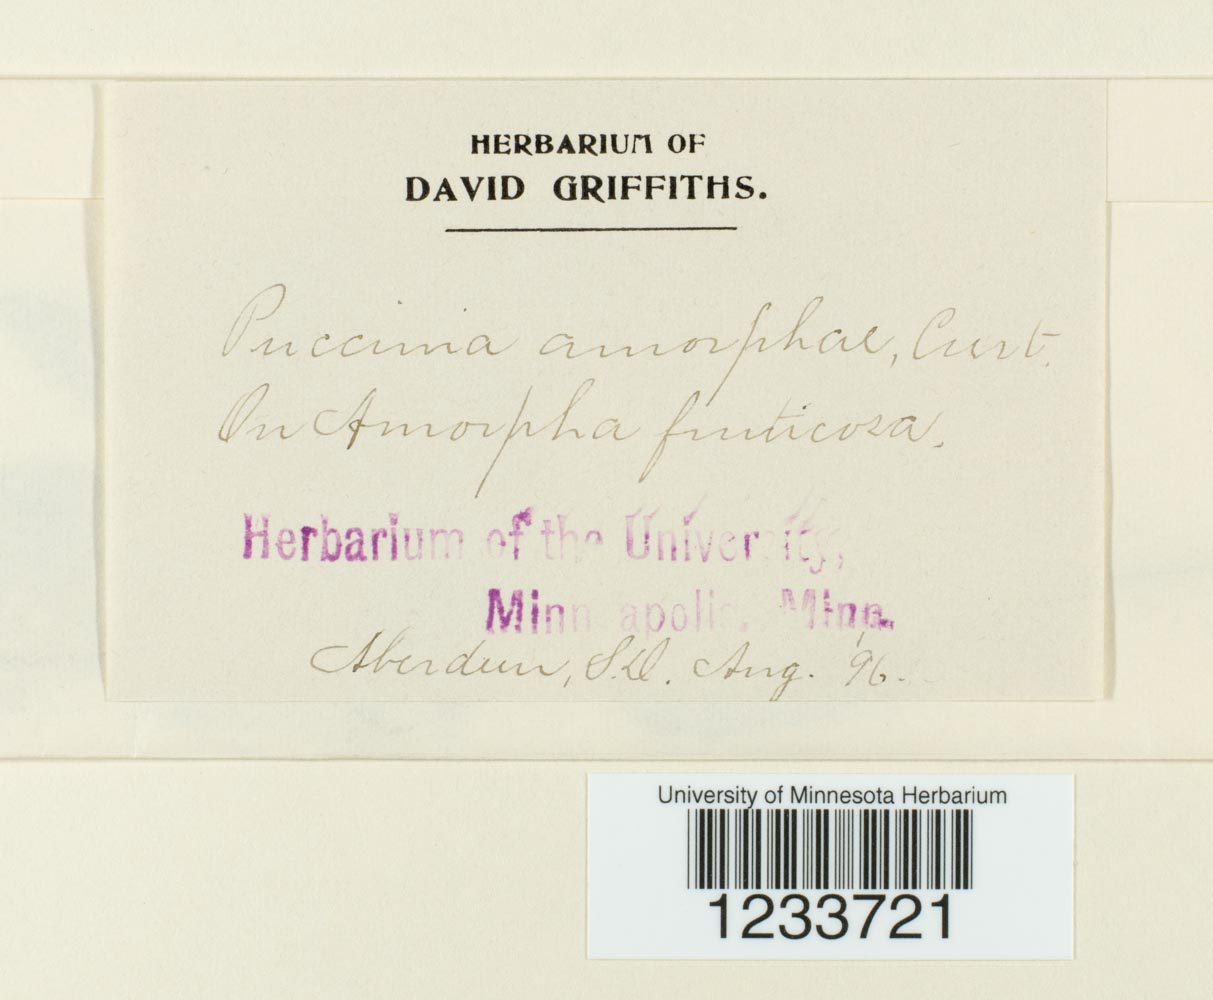 HERBARIUM OF
DAVID GRIFFITHS.
Puccinia amorphae, Curt.
On Amorpha fruticosa.
Herbarium of the University,
Minneapolis, Minn.
Aberdeen, S.D. Aug. '96.
University of Minnesota Herbarium
1233721